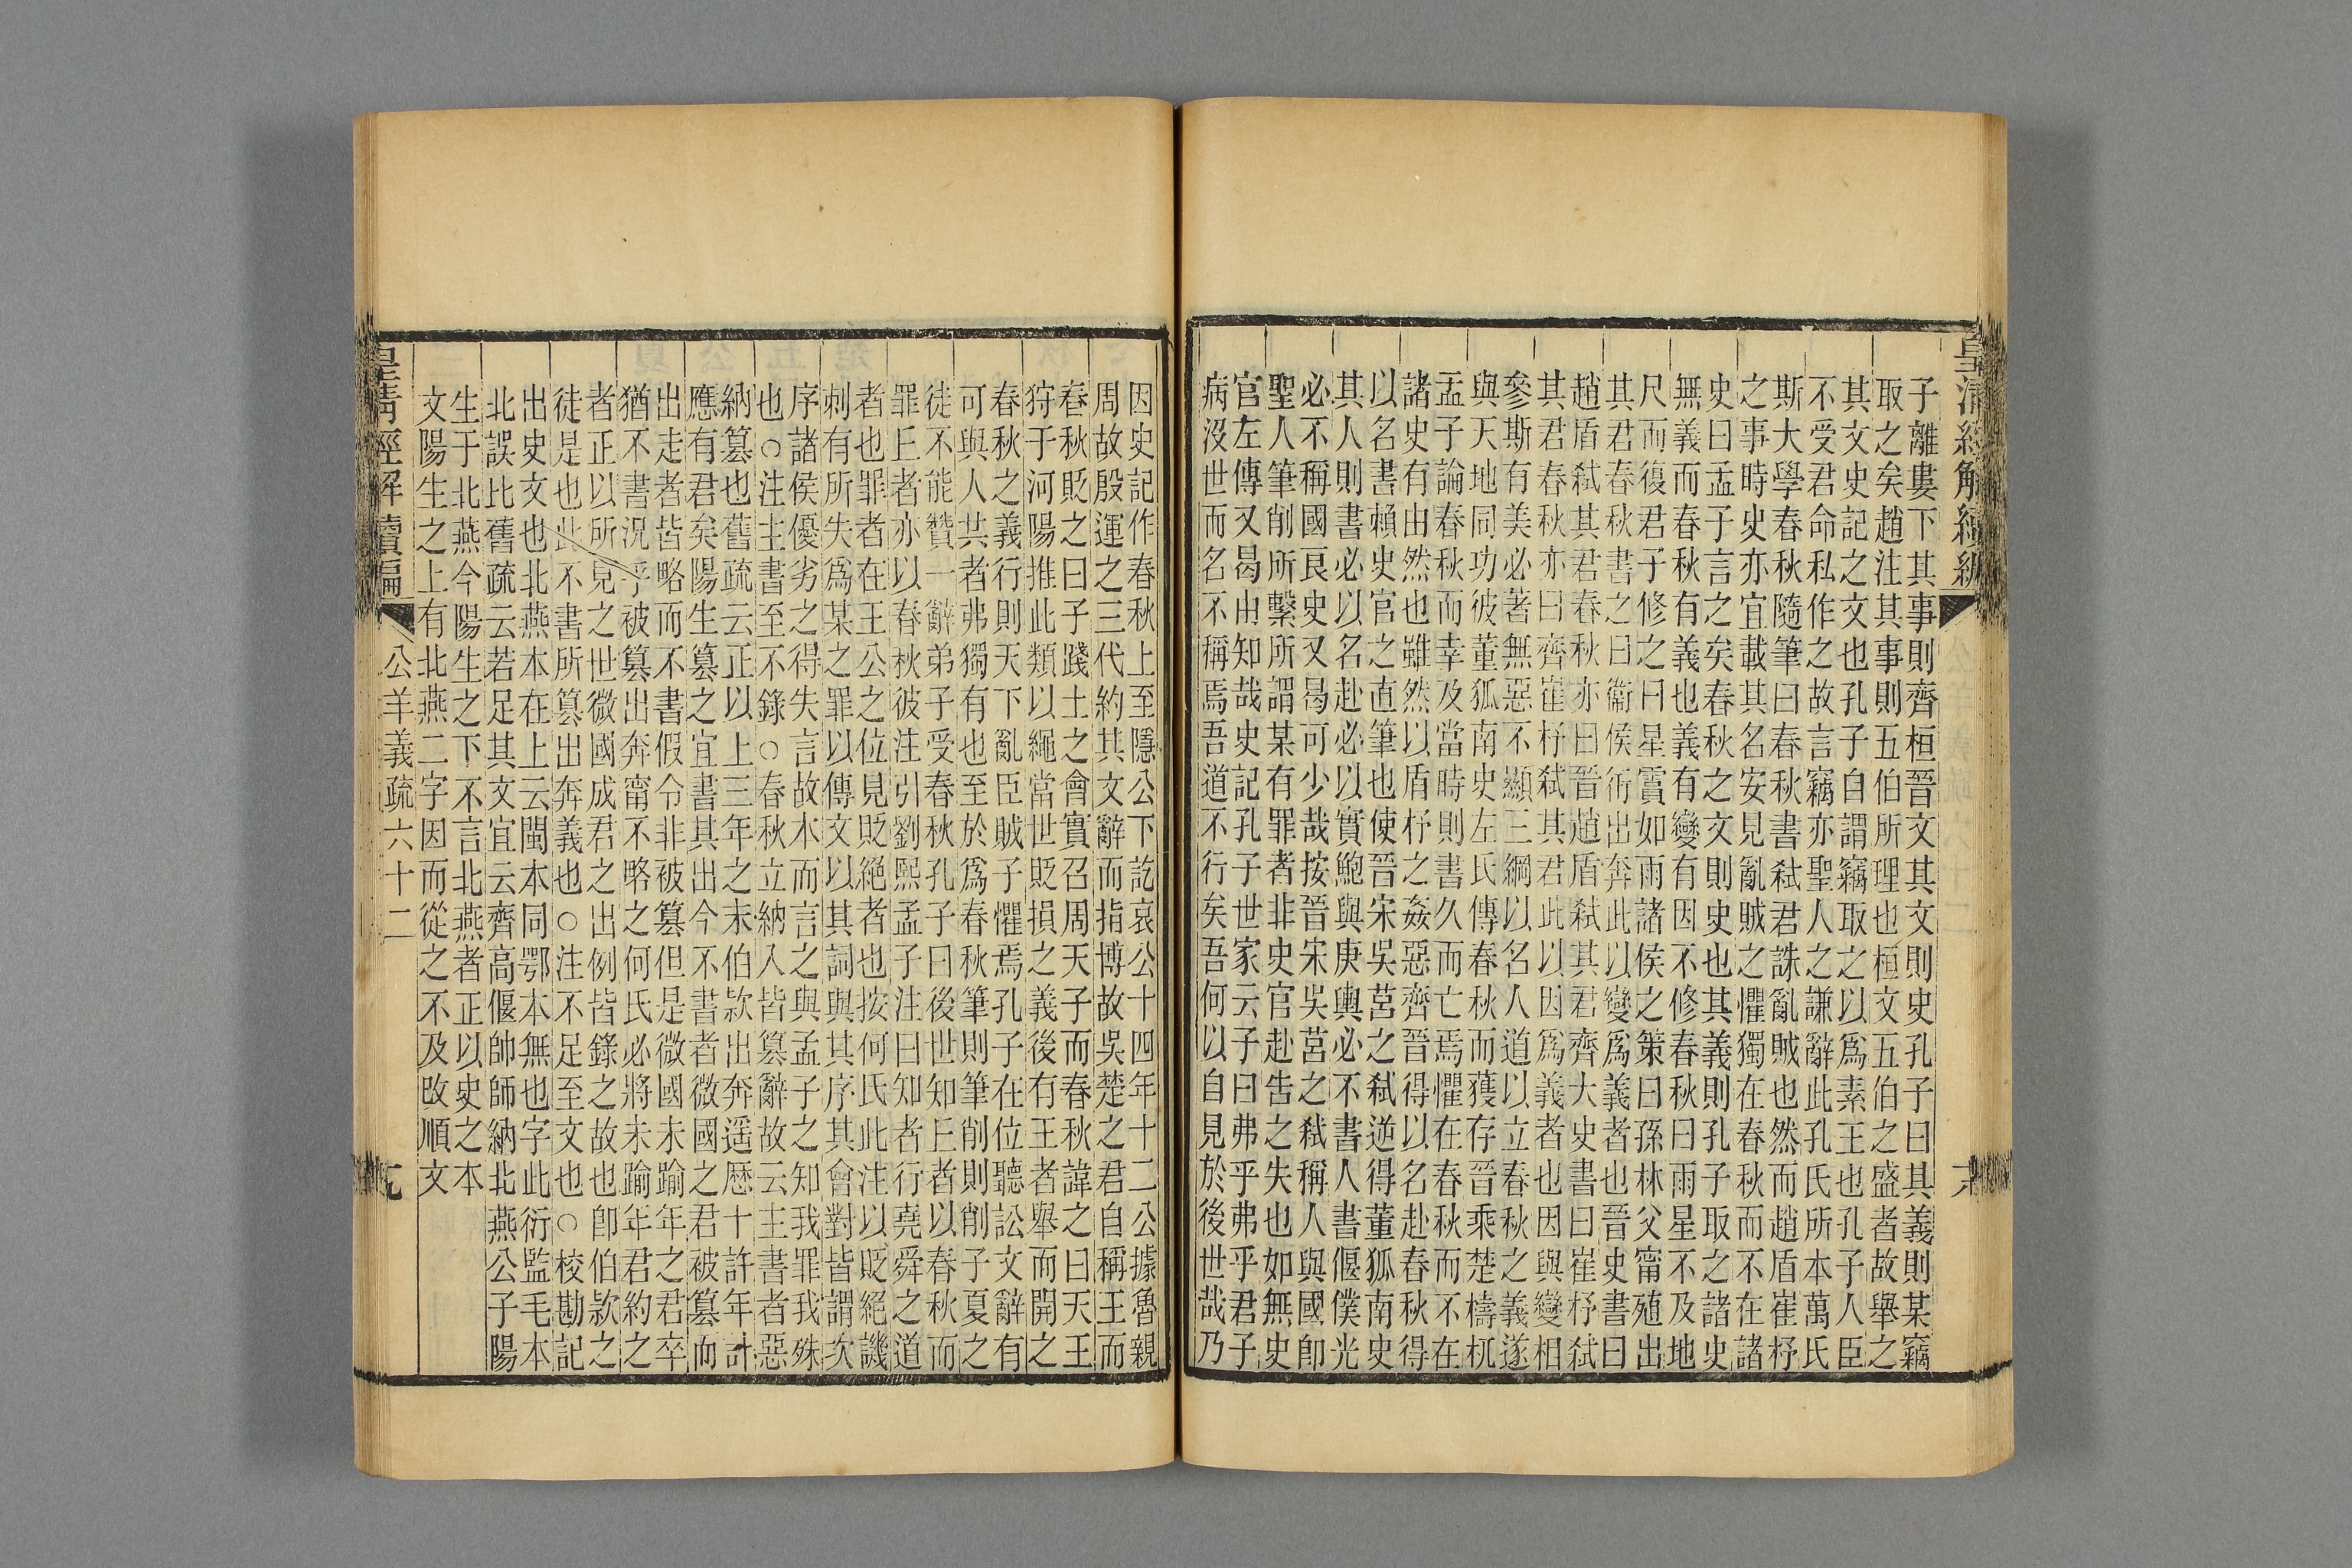 皇清經解續編
子離婁下其事則齊桓晉文其文則史孔子曰其義則某竊
取之矣趙注其事則五伯所理也桓文五伯之盛者故舉之
其文史記之文也孔子自謂竊取之以爲素王也孔子人臣
不受君命私作之故言竊亦聖人之謙辭此孔氏所本萬氏
斯大學春秋隨筆曰春秋書弒君誅亂賊也然而趙盾崔杼
之事時史亦宜載其名安見亂賊之懼獨在春秋而不在諸
史曰孟子言之矣春秋之文則史也其義則孔子取之諸史
無義而春秋有義也義有變有因不修春秋曰雨星不及地
尺而復君子修之曰星霣如雨諸侯之策曰孫林父甯殖出
其君春秋書之曰衞侯衎出奔此以變爲義者也晉史書曰
趙盾弒其君春秋亦曰晉趙盾弒其君齊大史書曰崔杼弒
其君春秋亦曰齊崔杼弒其君此以因爲義者也因與變相
參斯有美必著無惡不顯三綱以名人道以立春秋之義遂
與天地同功彼董狐南史左氏傳春秋而獲存晉乘楚檮杌
孟子論春秋而幸及當時則書久而亡焉懼在春秋而不在
諸史有由然也雖然以盾杼之姦惡齊晉得以名赴春秋得
以名書賴史官之直筆也使晉宋吳莒之弒逆得董狐南史
其人則書必以名赴必以實鮑與庚輿必不書人書偃僕光
必不稱國良史又曷可少哉按晉宋吳莒之弒稱人與國卽
聖人筆削所繫所謂某有罪者非史官赴告之失也如無史
官左傳又曷由知哉史記孔子世家云子曰弗乎弗乎君子
病沒世而名不稱焉吾道不行矣吾何以自見於後世哉乃
因史記作春秋上至隱公下訖哀公十四年十二公據魯親
周故殷運之三代約其文辭而指博故吳楚之君自稱王而
春秋貶之曰子踐土之會實召周天子而春秋諱之曰天王
狩于河陽推此類以繩當世貶損之義後有王者舉而開之
春秋之義行則天下亂臣賊子懼焉孔子在位聽訟文辭有
可與人共者弗獨有也至於爲春秋筆則筆削則削子夏之
徒不能贊一辭弟子受春秋孔子曰後世知丘者以春秋而
罪丘者亦以春秋彼注引劉熙孟子注曰知者行堯舜之道
者也罪者在王公之位見貶絕者也按何氏此注以貶絕譏
刺有所失爲某之罪以傳文以其詞與其序其會對皆謂次
序諸侯優劣之得失言故本而言之與孟子之知我罪我殊
也○注主書至不錄○春秋立納入皆篡辭故云主書者惡
納篡也舊疏云正以上三年之末伯款出奔遥歷十許年計
應有君矣陽生篡之宜書其出今不書者微國之君被篡而
出走者皆略而不書假令非被篡但是微國未踰年之君卒
猶不書況乎被篡出奔甯不略之何氏必將未踰年君約之
者正以所見之世微國成君之出例皆錄之故也卽伯款之
徒是也此不書所篡出奔義也○注不足至文也○校勘記
出史文也北燕本在上云閩本同鄂本無也字此衍監毛本
北誤比舊疏云若足其文宜云齊高偃帥師納北燕公子陽
生于北燕今陽生之下不言北燕者正以史之本
文陽生之上有北燕二字因而從之不及改順文
皇清經解續編 公羊義疏六十二